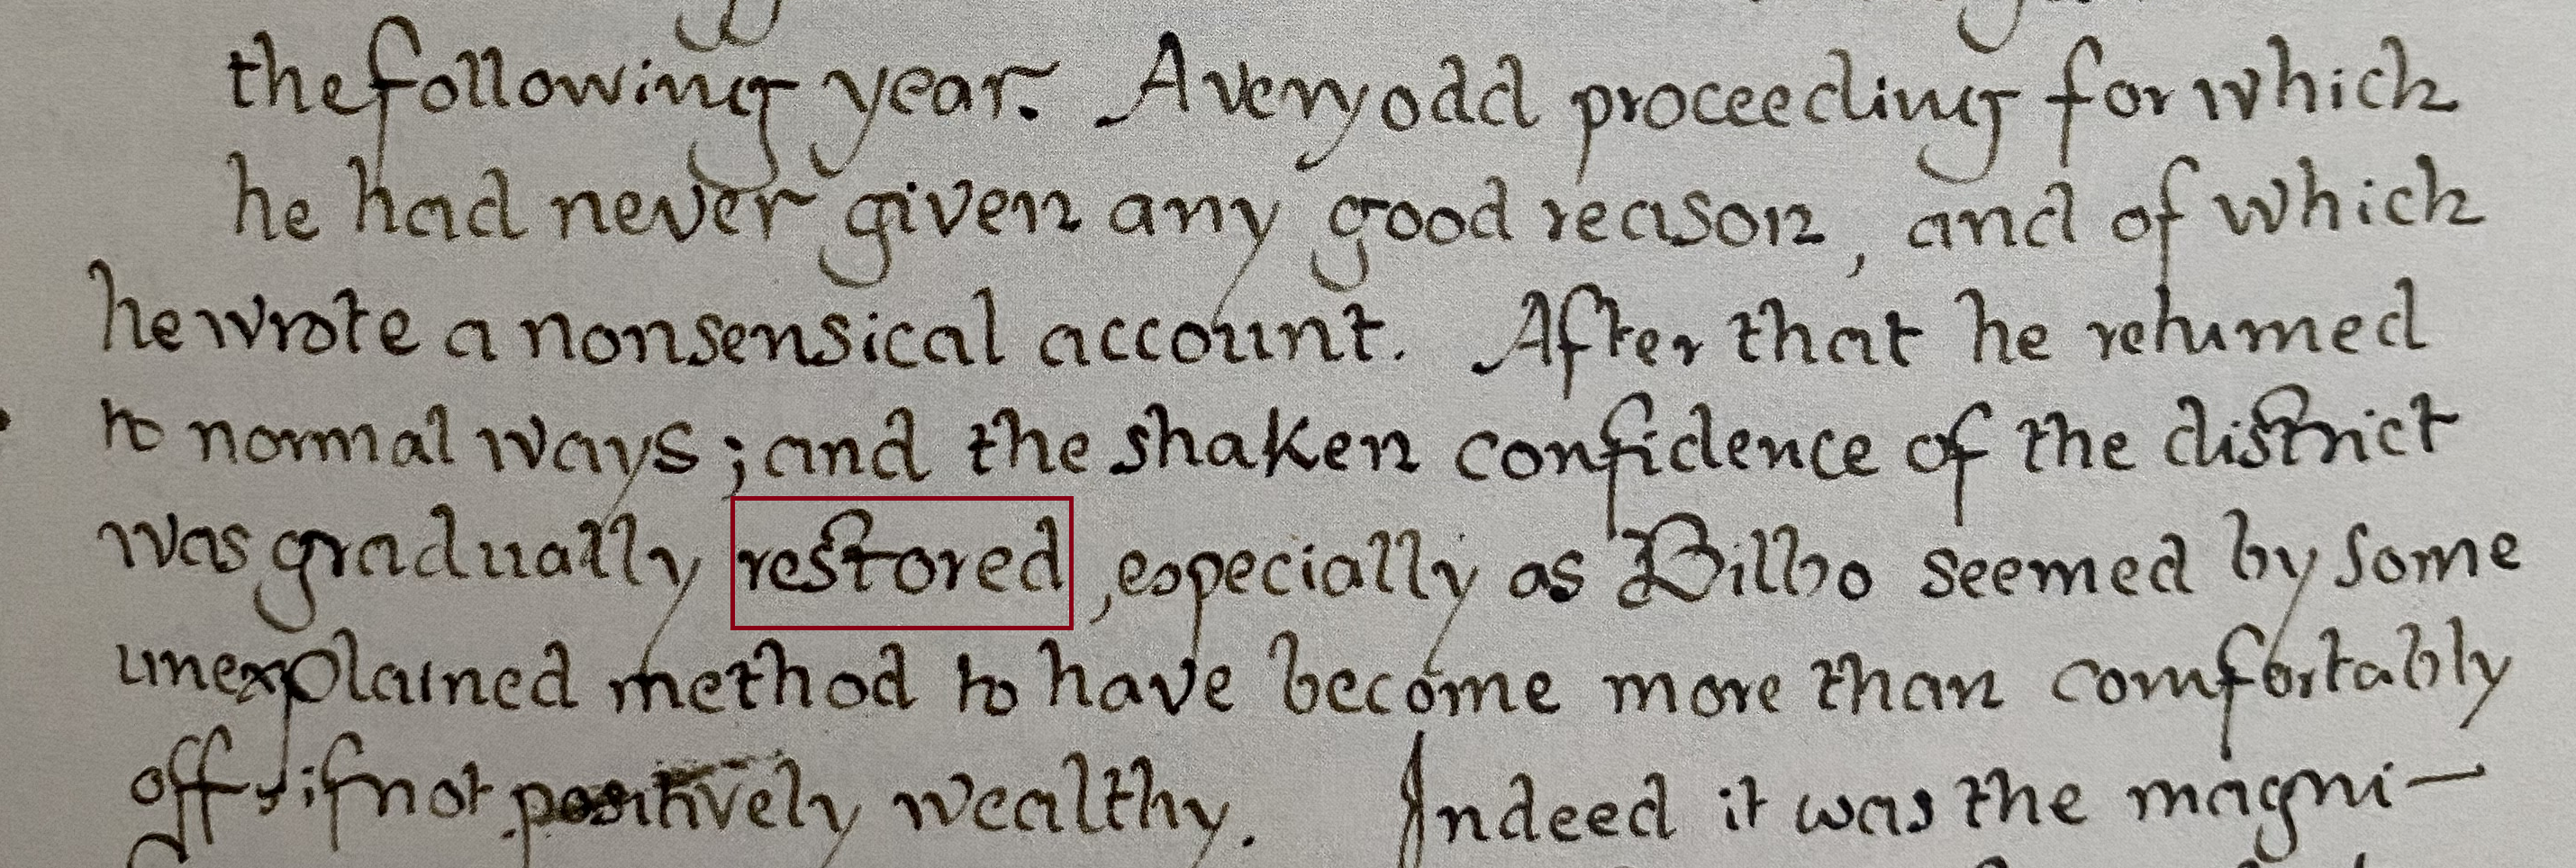 the following year. A very odd proceeding for which
he had never given any good reason, and of which
he wrote a nonsensical account. After that he returned
to normal ways; and the shaken confidence of the district
was gradually restored, especially as Bilbo seemed by some
unexplained method to have become more than comfortably
off, if not positively wealthy. Indeed it was the magni-